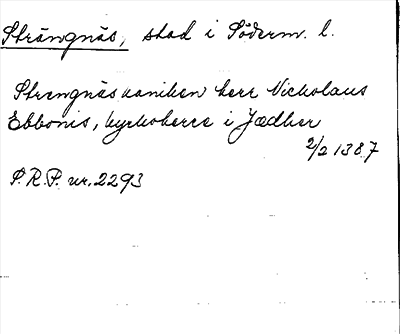 Strängnäs, stad i Söderm. l.
Strengnäskaniken herr Nicholaus
Ebbonis, kyrkoherre i Jædher
2/2 1387
S.R.P. nr. 2293